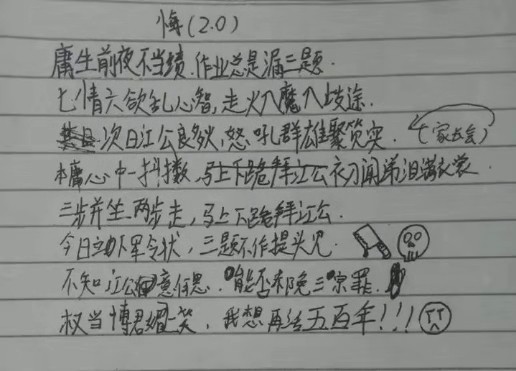 悔(2.0)
庸生前夜不当绩.作业总是漏三题.
七情六欲乱心智,走火入魔入歧途.
次日江公良多火,怒吼群雄聚 (家长会)
本庸心中一抖擞,马上下跪拜江公 闻涕泪满衣裳.
三步并坐两步走,马上下跪拜江公.
今日立下军令状,三题不作提头见.
不知江公意何思.能否求晚三宗罪.
权当博君媚一笑,我想再活五百年!!!